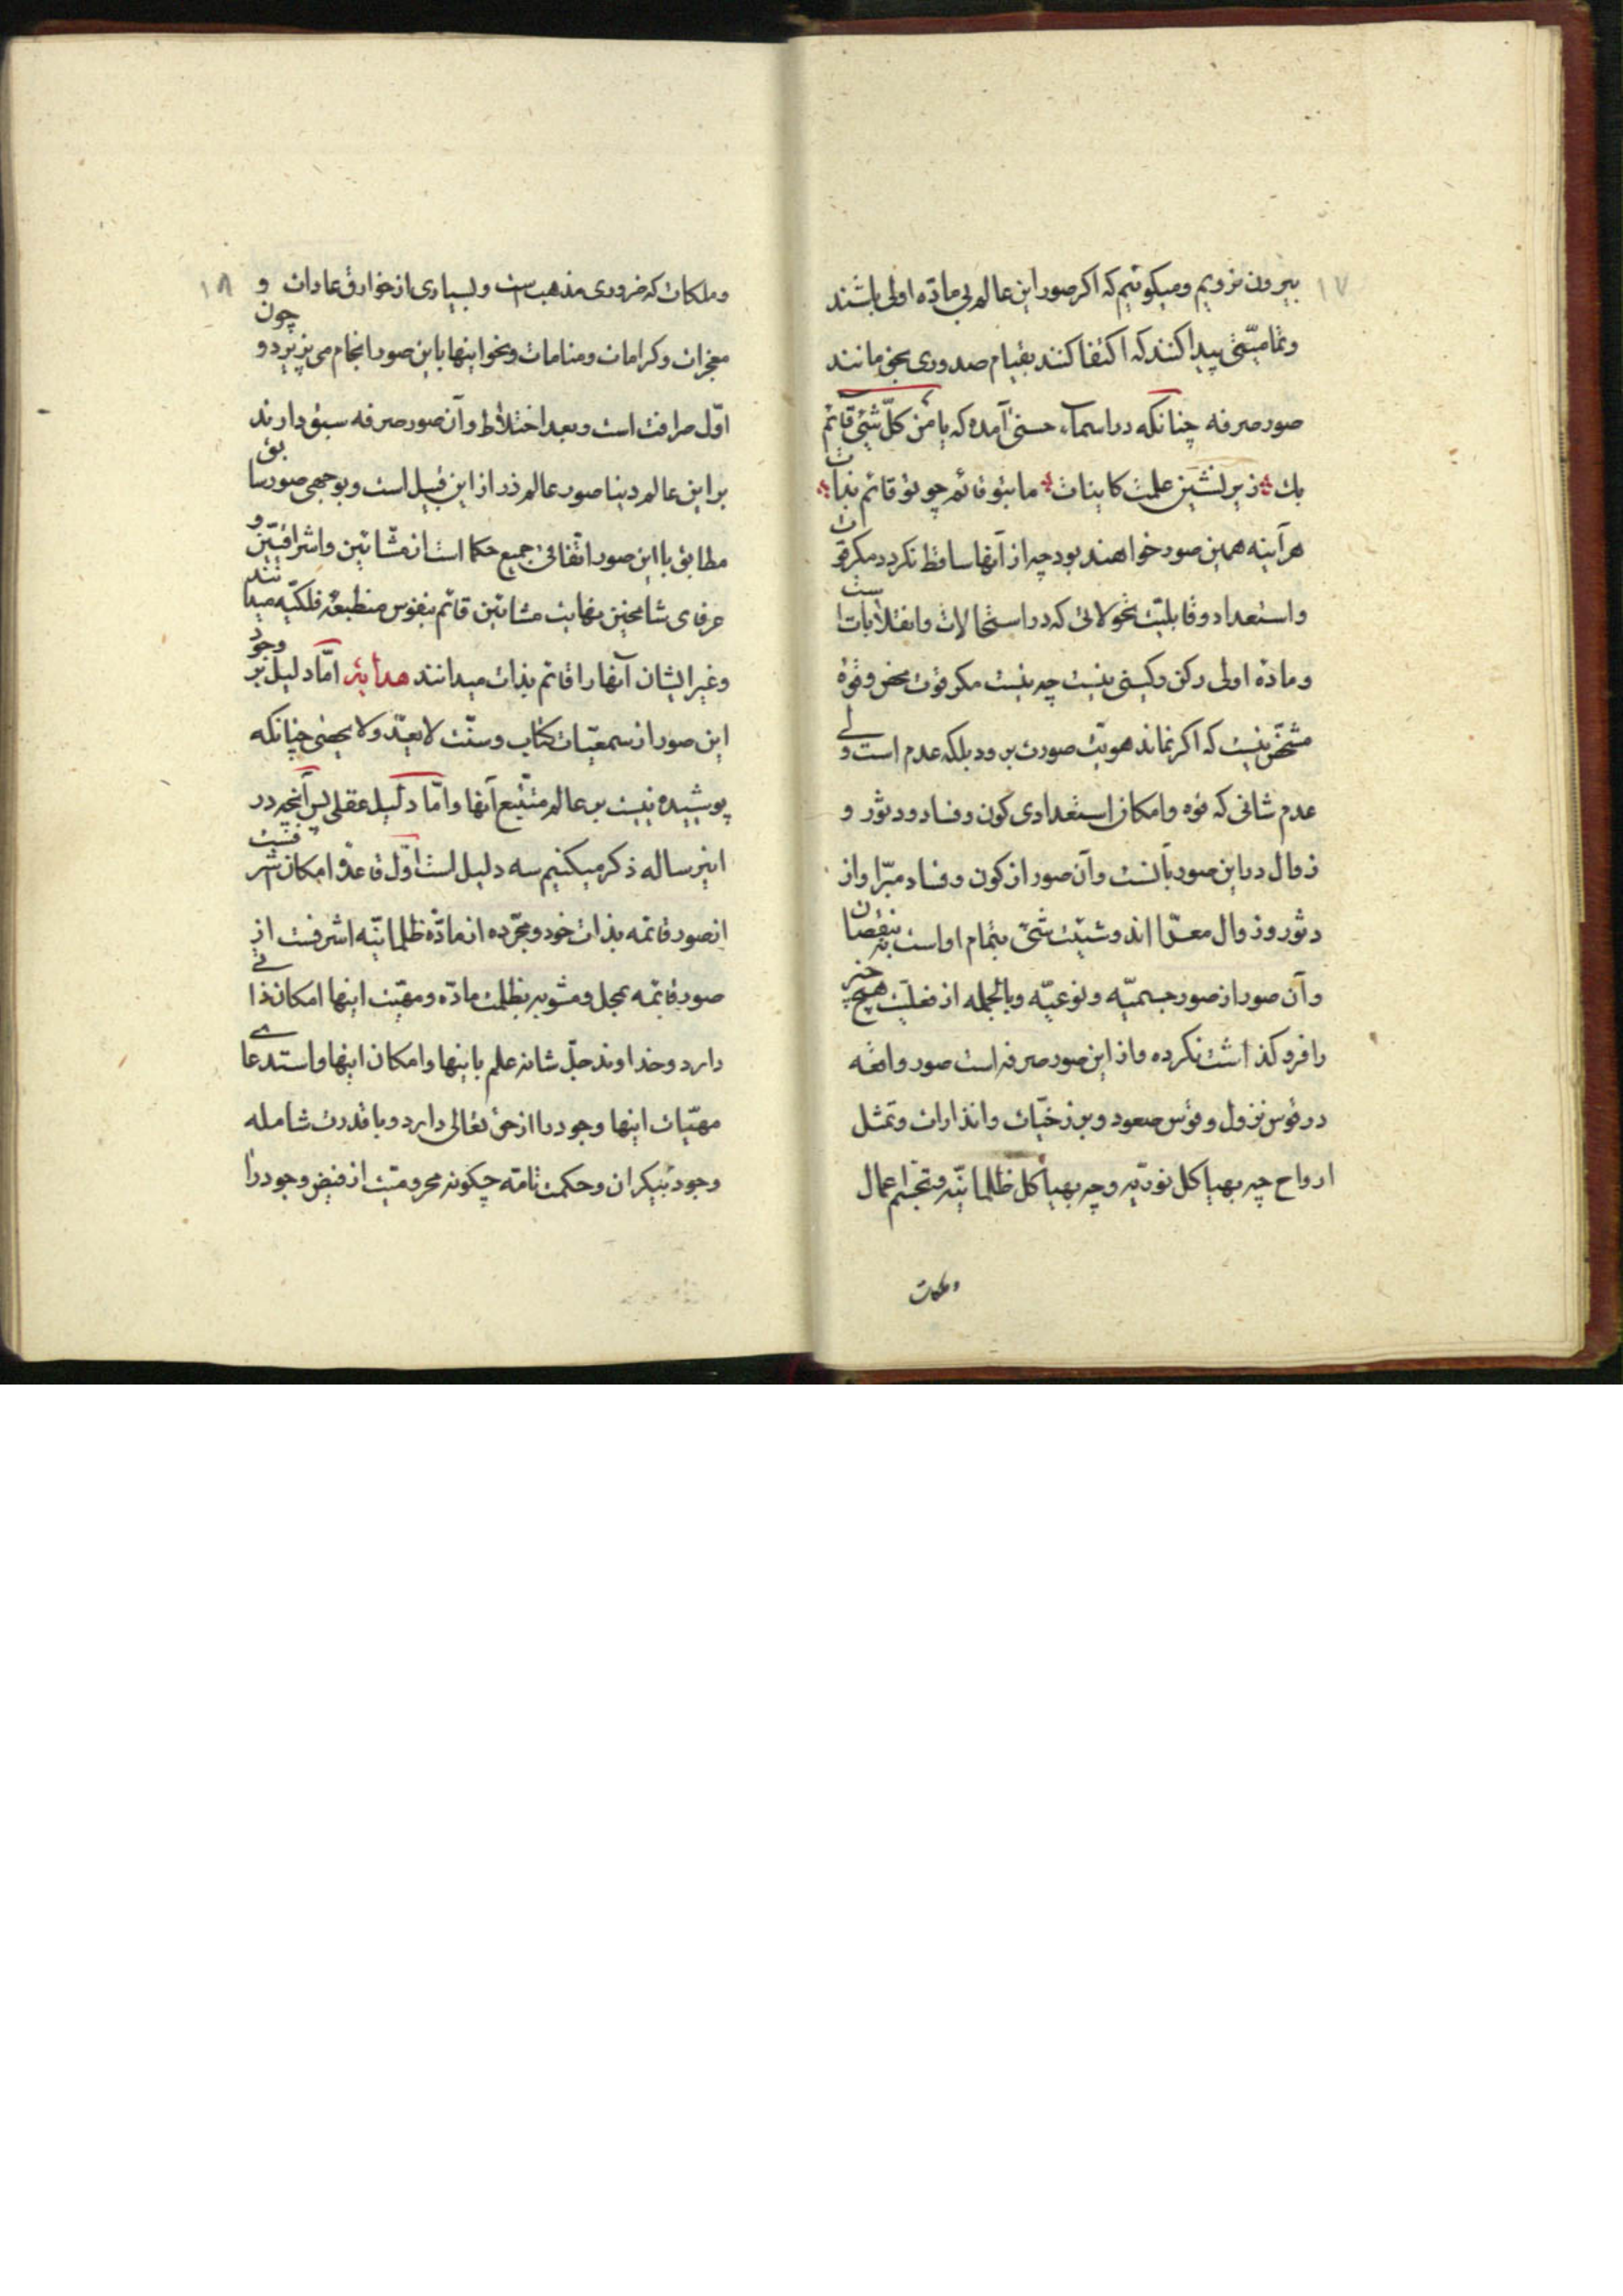 ۱۷
بیرون نرویم ومیکوئیم که اکر صور این عالم بی مادّه اولی باشند
وتمامیّتی پیدا کنند که اکتفا کنند بقیام صدوری بحق مانند
صور صرفه چنانکه در اسماء حسنی آمده که یا من کلّ شئی قائم
بك زیر نشین علمت کاینات ما بتو قائم چو تو قائم بذات
هر آینه همین صور خواهند بود چه از آنها ساقط نکردد مکر قوت
واستعداد وقابلیّت تحولاتی که در استحالات وانقلابات است
ومادّه اولی رکن رکینی نیست چه نیست مکر قوت محض وقوّه
مشخّص نیست که اکر نماند هویّت صورت برود بلکه عدم است ولی
عدم شانی که قوه وامکان استعدادی کون وفساد ودثور و
زوال در این صور بآنست وآن صور از کون وفساد مبرّا واز
دثور وزوال معرّا اند وشیئیّت شئی بتمام او است نه بنقصان
وآن صور از صور جسمیّه ونوعیّه وبالجمله از فعلیّت هیچ چیز
را فرو کذاشت نکرده واز این صور صرفه است صور واقعه
در قوس نزول وقوس صعود وبرزخیّات وانذارات وتمثل
ارواح چه بهیاکل نوریّه وچه بهیاکل ظلمانیّه وتجسّم اعمال
وملکات
۱۸
وملکات که ضروری مذهب است وبسیاری از خوارق عادات و
چون
معجزات وکرامات ومنامات ونحو اینها باین صور انجام می پزیرد و
اوّل صرافت است وبعد اختلاط وآن صور صرفه سبق دارند
بر این عالم دنیا صور عالم ذر از این قبیل است وبوجهی صور سابق
مطابق با این صور اتّفاقی جمیع حکما است از مشّائین واشراقیّین و
عرفای شامخین نهایت مشائین قائم بنفوس منطبعهٔ فلکیّه میدانند
وغیر ایشان آنها را قائم بذات میدانند هدایة امّا دلیل بر وجود
این صور از سمعیّات کتاب وسنّت لا یعدّ ولا یحصی چنانکه
پوشیده نیست بر عالم متتبّع آنها وامّا دلیل عقلی پس آنچه در
اینرساله ذکر میکنیم سه دلیل است اوّل قاعدهٔ امکان اشرفست
از صور قائمه بذات خود ومجرّده از مادّه ظلمانیّه اشرفست از
صور قائمه بمحل ومشوبه بظلمت مادّه ومهیّت اینها امکان ذاتی
دارد وخداوند جلّ شانه علم باینها وامکان اینها واستدعای
مهیّات اینها وجود را از حق تعالی دارد وبا قدرت شامله
وجود بیکران وحکمت تامّه چکونه محرومیّت از فیض وجود را